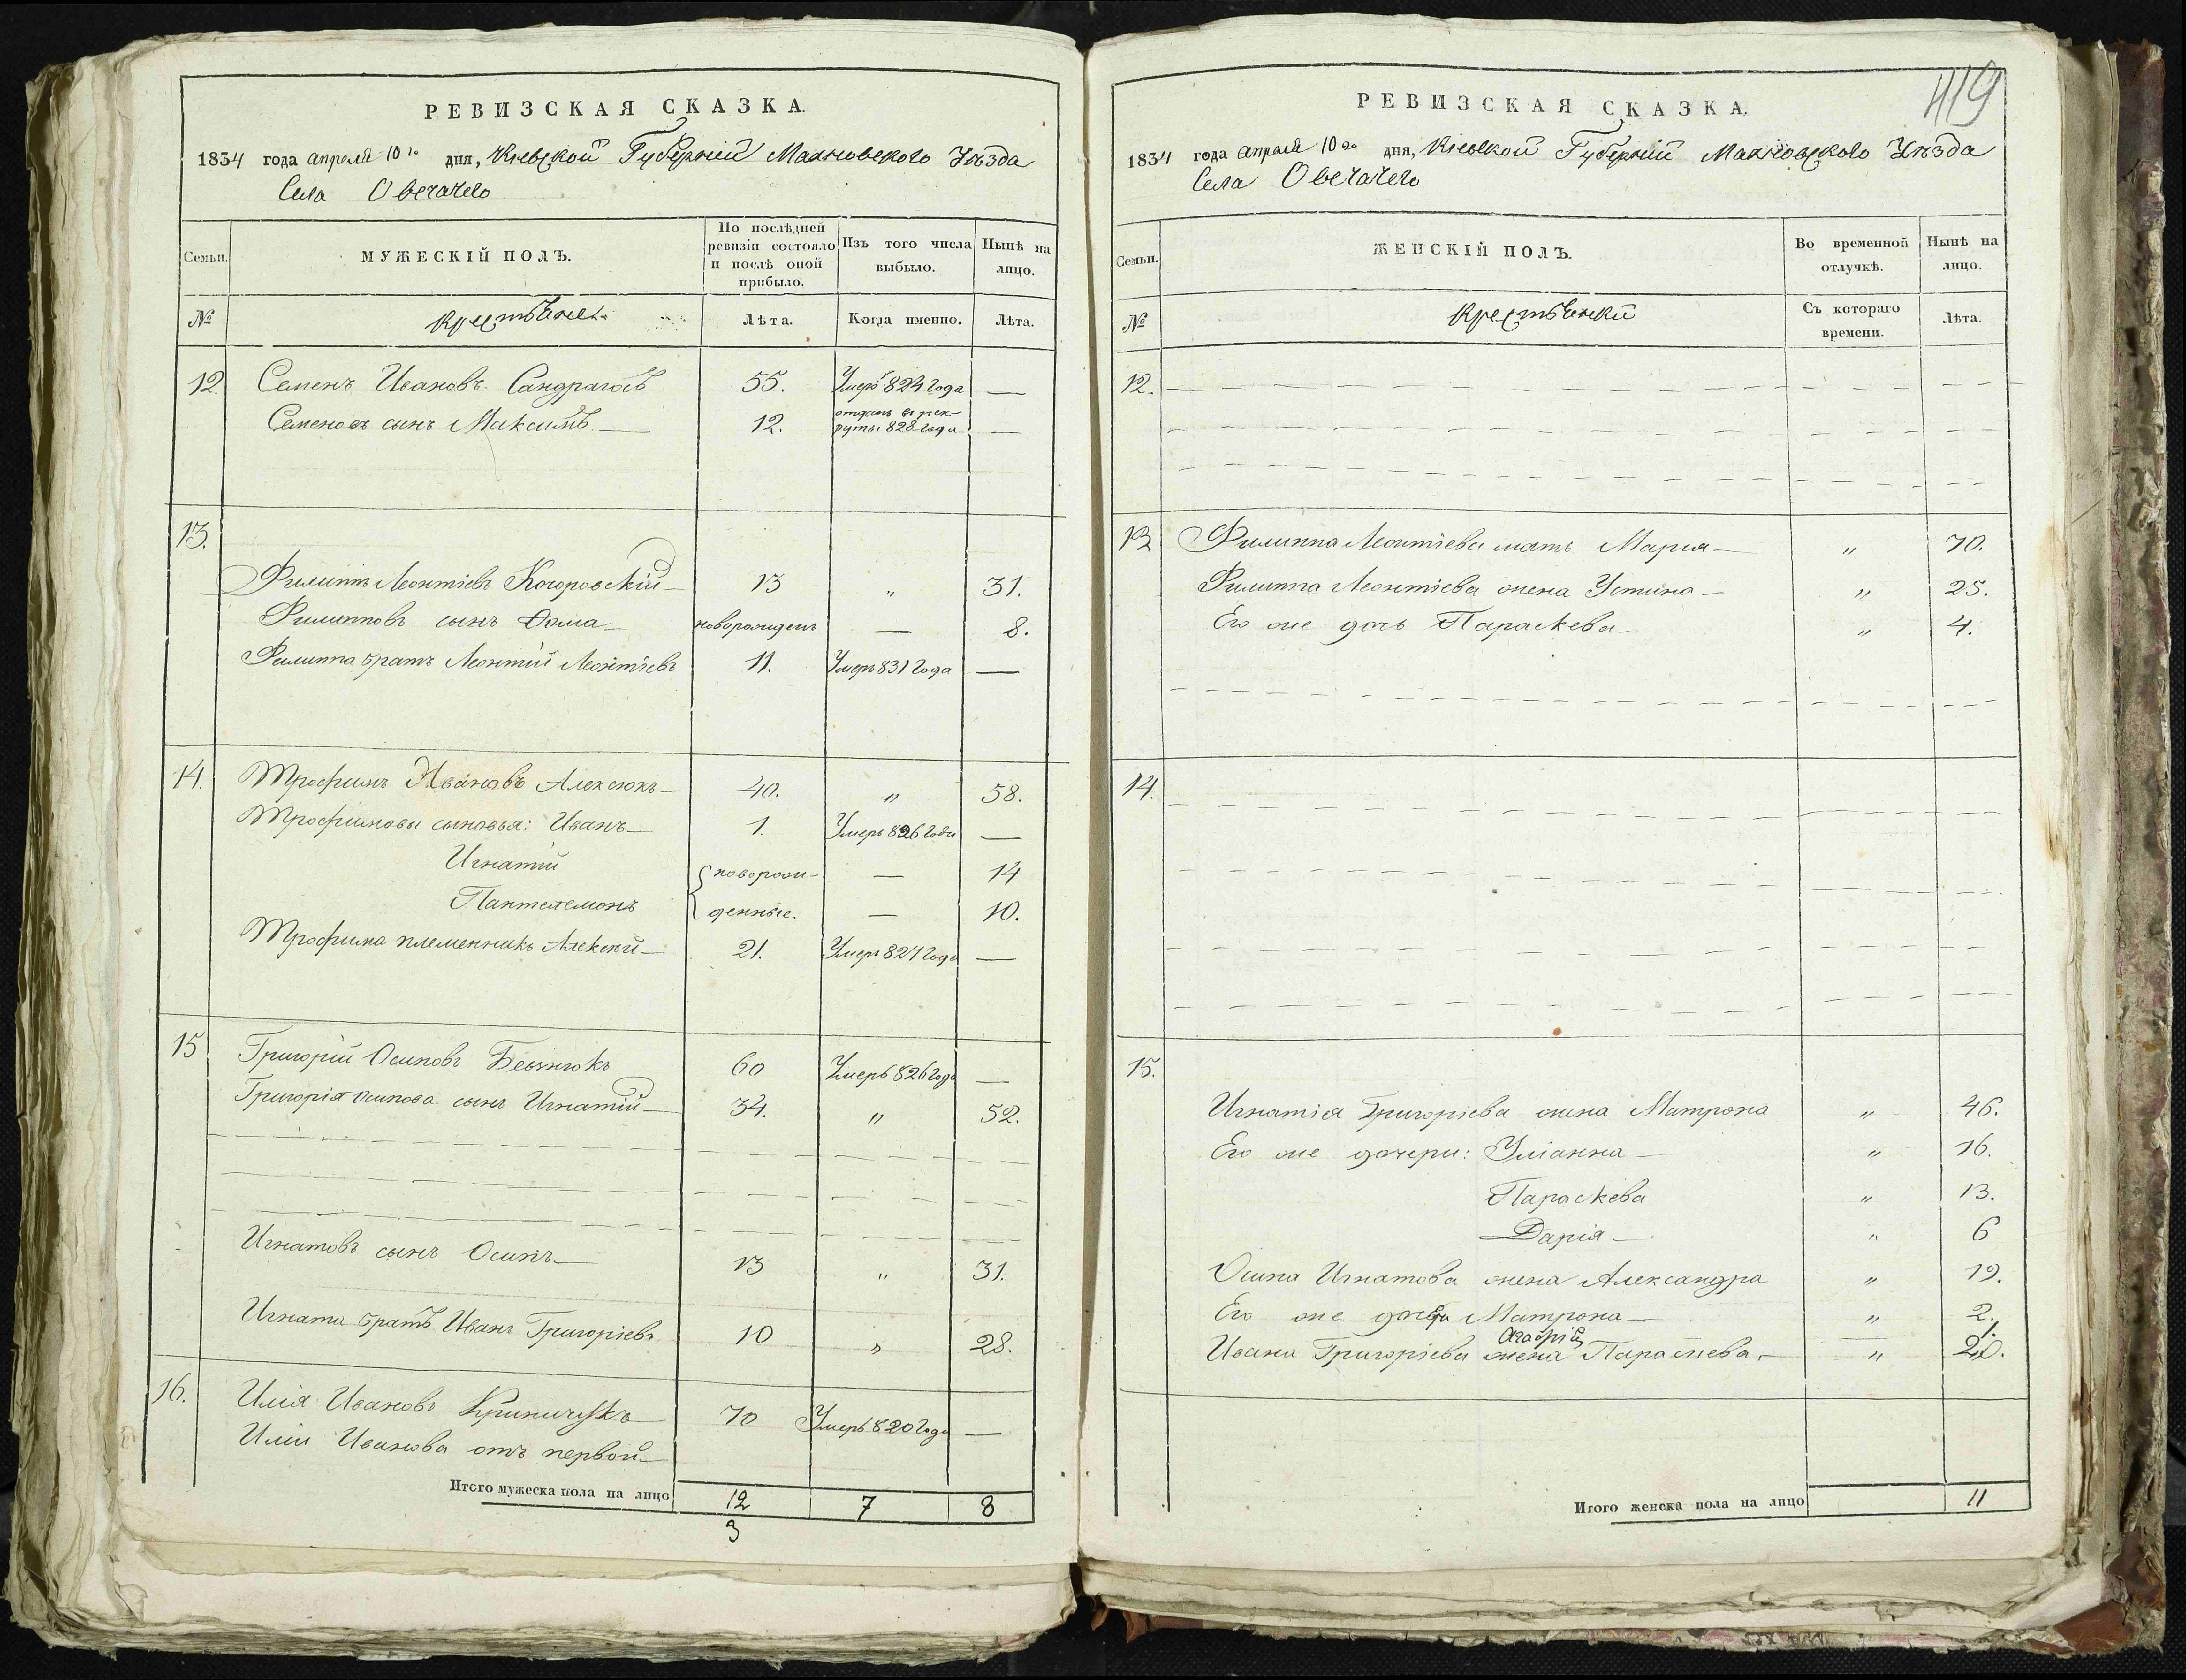 РЕВИЗСКАЯ СКАЗКА.
1834 года апреля 10го дня, Кіевской Губерніи Махновского Уѣзда
Села Овечачего
Семьи. МУЖЕСКІЙ ПОЛЪ. По послѣдней ревизіи состояло и послѣ оной прибыло. Изъ того числа выбыло. Нынѣ на лицо.
№ Крестьяне Лѣта. Когда именно. Лѣта.
12. Семенъ Ивановъ Сандрагосъ 55. Умеръ 824 года —
Семеновъ сынъ Максимъ — 12. отданъ въ рек-
руты 828 года —
13.
Филиппъ Леонтіевъ — 13 „ 31.
Филипповъ сынъ Фома — новорожденъ — 8.
Филиппа братъ Леонтій Леонтіевъ 11. Умеръ 831 года —
14. Трофимъ Ивановъ Алексюкъ — 40. „ 58.
Трофимовы сыновья: Иванъ — 1. Умеръ 826 года —
Игнатій { новорож- — 14
Пантелемонъ денные. — 10.
Трофима племенникъ Алексѣй — 21. Умеръ 827 года —
15 Григорій Осиповъ 60 Умеръ 826 года —
Григорія Осипова сынъ Игнатій — 34. „ 52.
Игнатовъ сынъ Осипъ — 13 „ 31.
Игнати братъ Иванъ Григоріевъ 10 „ 28.
16. Илія Ивановъ Криничукъ 70 Умеръ 820 года —
Иліи Иванова отъ первой —
Итого мужеска пола на лицо 12 7 8
3
419
РЕВИЗСКАЯ СКАЗКА.
1834 года апреля 10го дня, Кіевской Губерніи Махновского Уѣзда
Села Овечачего
Семьи. ЖЕНСКІЙ ПОЛЪ. Во временной отлучкѣ. Нынѣ на лицо.
№ Крестьянки Съ котораго времени. Лѣта.
12.
13 Филиппа Леонтіева мать Мария — „ 70.
Филиппа Леонтіева жена Устина — „ 25.
Его же дочь Параскева — „ 4.
14.
15.
Игнатія Григоріева жена Матрона „ 46.
Его же дочери: Уліанна — „ 16.
Параскева „ 13.
Дарія — „ 6
Осипа Игнатова жена Александра „ 19.
Его же дочери Матрона — „ 2.
1.
Ивана Григоріева жена Параскева — „ 20.
Итого женска пола на лицо 11